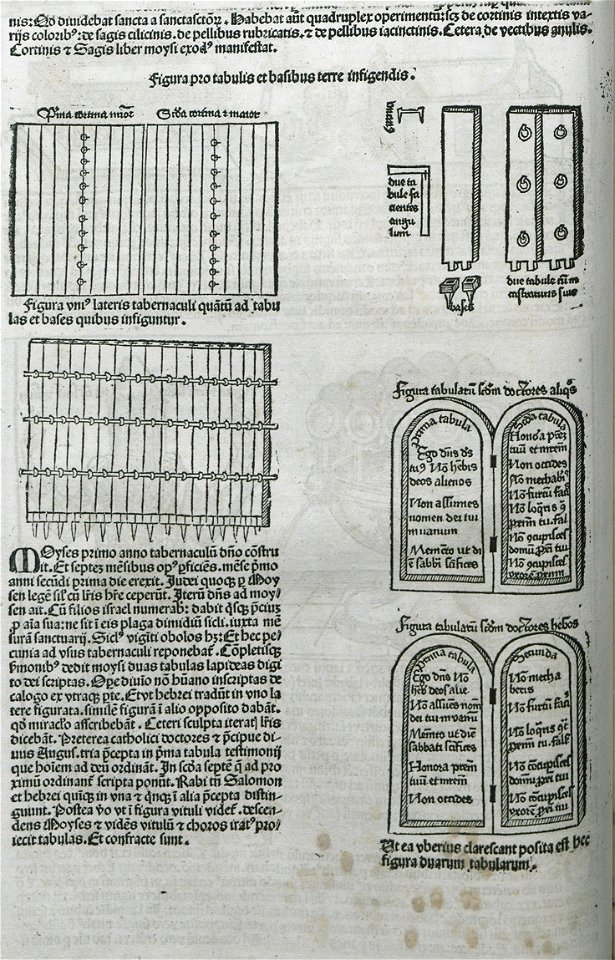 nis: Qđ dividebat sancta a sanctis sanctoꝝ. Habebat aūt quadruplex operimentū: scꝫ de cortinis intextis va-
rijs coloribꝰ: de sagis cilicinis. de pellibus rubricatis. ⁊ de pellibus iacinctinis. Cetera de vectibus anulis.
Cortinis ⁊ Sagis liber moysi exodꝰ manifestat.
Figura pro tabulis et basibus terre infigendis.
Pͥma cortina minor Scđa cortina ⁊ maior
Figura vniꝰ lateris tabernaculi quātū ad tabu
las et bases quibus infiguntur.
due ta
bule fa
cientes
angu
lum
bases
due tabule cū in
castraturis suis
MOyses primo anno tabernaculū dn̄o cōstru
it. Et septeꝫ mēsibus opꝰ pficiēs. mēse pͥmo
anni secūdi prima die erexit. Judei quoqꝫ p Moy
sen legē sil' cū lr̄is hr̄e ceperūt. Iterū dn̄s ad moy
sen ait. Cū filios israel numerabꝭ: dabit qͥsqꝫ p̄ciuꝫ
ꝓ aīa sua: ne sit ī eis plaga dimidiū sicli. iuxta mē
surā sanctuarij. Siclꝰ vigīti obolos hꝫ: Et hec pe
cunia ad vsus tabernaculi reponebat̄. Cōpletisqꝫ
ẜmonibꝰ dedit moysi duas tabulas lapideas digi
to dei scriptas. Ope diuīo nō hūano inscriptas de
calogo ex vtraqꝫ pte. Et vt hebrei tradūt in vno la
tere figurata. similē figurā ī alio opposito dabāt.
qđ miraclo ascribebāt. Ceteri sculpta iteratꝭ lr̄is
dicebāt. Preterea catholici doctores ⁊ p̄cipue di-
uus Augus. tria p̄cepta in pͥma tabula testimonij
que hoīem ad deū ordināt. In scđa septē q̄ ad pro
ximū ordinant̄ scripta ponūt. Rabi tn̄ Salomon
et hebrei quīqꝫ in vna ⁊ qͥnqꝫ ī alia p̄cepta distin-
guunt. Postea ꝟo vt ī figura vituli videt̄. descen-
dens Moyses ⁊ vidēs vitulū ⁊ choros iratꝰ pro-
iecit tabulas. Et confracte sunt.
Figura tabularū scđm doctores aliqͦs
Prima tabula
Ego dn̄s ds̄
tuꝰ Nō hēbis
deos alienos
Non assumes
nomen dei tui
in vanum
Memēto vt di
ē sabbī sctifices
Scđa tabula
Honora prēꝫ
tuū et mrēm
Non occides
Nō mechabꝭ
Nō furtū faciꝰ
Nō loqͣris ꝯ
prīm tu. fal
Nō ꝯcupisces
domū pxī tui
Nō ꝯcupisces
vxorē prīm
Figura tabularū scđm doctores hebꝰos
Prima tabula
Ego dn̄s Nō
hēbꝭ deos alie.
Nō assūes nom̄
dei tui in vanū
Memēto vt diē
sabbati sctifices
Honora prēm
tuū et mrēm
Non occides
Secunda
Nō mecha
beris
Nō furtū faciꝰ
Nō loqͣris ꝯͣ
prīm tu. fals
Nō ꝯcupisces
domū pxī tui
Nō ꝯcupisces
vxorē pxī tui
Ut ea vberius clarescant posita est hec
figura duarum tabularum.